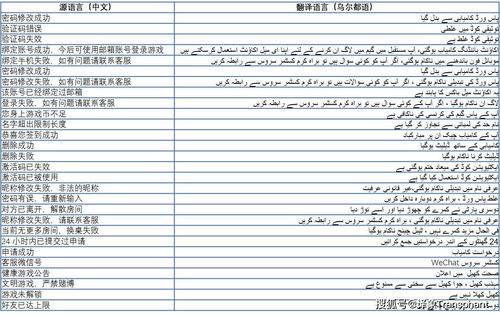 源语言（中文） 翻译语言（乌尔都语）
密码修改成功 پاس ورڈ کامیابی سے بدل گیا
验证码错误 توثیقی کوڈ میں غلطی
验证码失效 توثیقی کوڈ غلط ہے
绑定账号成功，今后可使用邮箱账号登录游戏 اکاؤنٹ بائنڈنگ کامیاب ہوگئی، آپ مستقبل میں گیم میں لاگ ان کرنے کے لئے اپنا ای میل اکاؤنٹ استعمال کر سکتے ہیں
绑定手机失败，如有问题请联系客服 موبائل فون باندھنے میں ناکام ہوگئی، اگر آپ کو کوئی سوالات ہیں تو براہ کرم کسٹمر سروس سے رابطہ کریں
密码修改成功 پاس ورڈ کامیابی سے بدل گیا
密码修改失败，如有问题请联系客服 پاس ورڈ کی تبدیلی ناکام ہوگئی، اگر آپ کو کوئی سوالات ہیں تو براہ کرم کسٹمر سروس سے رابطہ کریں
该账号已经绑定过邮箱 یہ اکاؤنٹ میل باکس کا پابند ہے
登录失败，如有问题请联系客服 لاگ ان ناکام ہوگیا ، اگر آپ کے کوئی سوال ہیں تو براہ کرم کسٹمر سروس سے رابطہ کریں
您身上游戏币不足 آپ کے پاس گیم کی کرنسی کی ناکافی ہے
名字超出限制长度 نام حد کی لمبائی سے تجاوز کر گیا ہے
恭喜您签到成功 آپ کے کامیاب چیک ان پر مبارکباد
删除成功 کامیابی کے ساتھ ڈیلیٹ ہوگیا
删除失败 ڈیلیٹ کرنا ناکام ہوگیا
激活码已失效 ایکٹیویشن کوڈ کی میعاد ختم ہوگئی ہے
激活码已被使用 ایکٹیویشن کوڈ استعمال کیا گیا ہے
昵称修改失败，非法的昵称 عرفی نام میں تبدیلی ناکام ہوگئی،غیر قانونی عرفیت
密码有误，请重新输入 غلط پاس ورڈ ، براہ کرم دوبارہ داخل کریں
对方已离开，解散房间 دوسری پارٹی نے کمرے کو چھوڑ دیا اور اسے توڑ دیا
昵称修改失败，请联系客服 عرفی نام میں تبدیلی ناکام ہوگئی، براہ کرم کسٹمر سروس سے رابطہ کریں
当前无更多房间，换桌失败 فی الحال مزید کمرے نہیں ، ٹیبل چینج ناکام ہوگیا
24 小时内已提交过申请 24 گھنٹوں کے اندر درخواستیں جمع کرائیں
申请成功 درخواست کامیاب
客服微信号 کسٹمر سروس WeChat
健康游戏公告 صحت کھیل میں اعلان
文明游戏，严禁赌博 مہذب کھیل ، جوا کھیل سے سختی سے ممنوع ہے
游戏未解锁 کھیل کھلا نہیں ہے
好友已达上限
搜狐号@蜂象Transphant